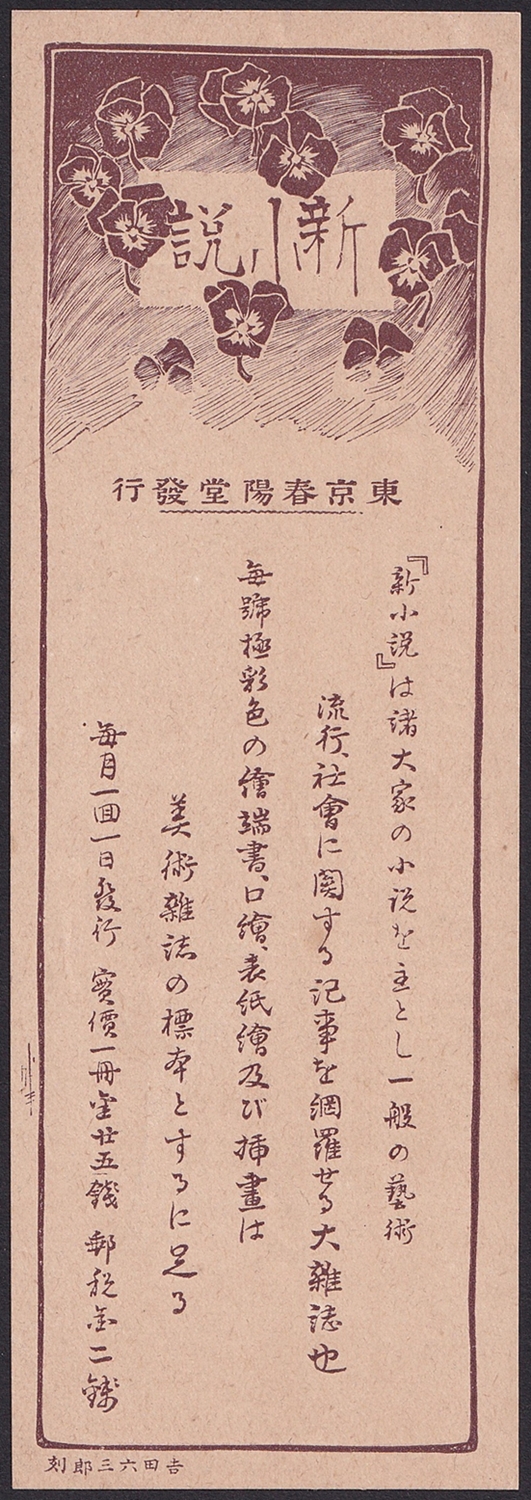 新小説
東京春陽堂發行
『新小説』は諸大家の小説を主とし一般の藝術
流行、社會に関する記事を網羅せる大雜誌也
毎號極彩色の繪端書、口繪、表紙繪及び挿畫は
美術雜誌の標本とするに足る
毎月一回一日發行 實價一冊金廿五錢 郵税金二錢
吉田六三郎刻